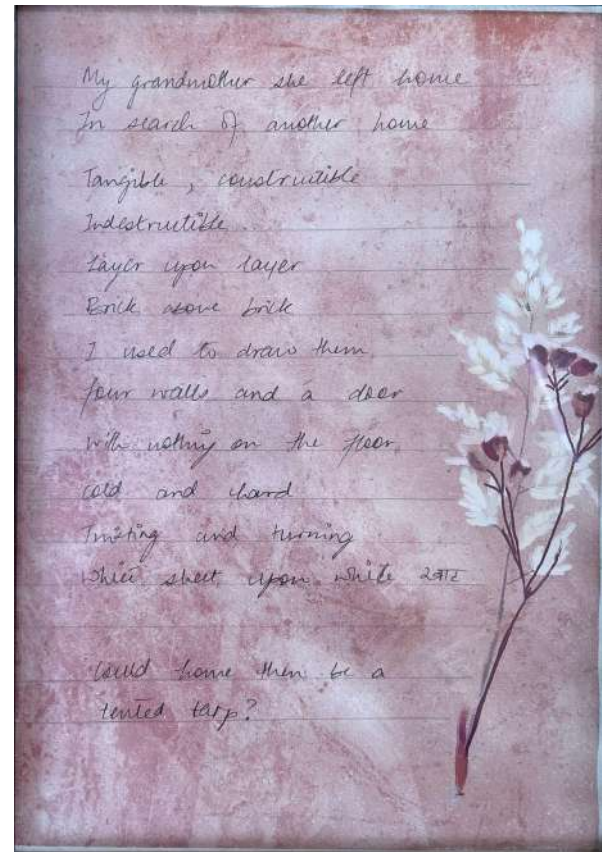 My grandmother she left home
In search of another home
Tangible, constructible
Indestructible
Layer upon layer
Brick above brick
I used to draw them
four walls and a door
with nothing on the floor,
cold and hard
Twisting and turning
White sheet upon white
Could home then be a
tented tarp?